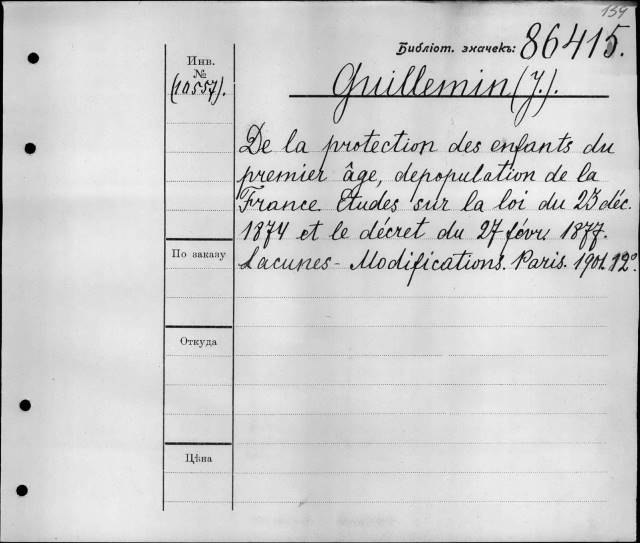 159
Библіот. значекъ: 86415.
Инв.
№
(10557).
Guillemin (J.).
De la protection des enfants du
premier âge, depopulation de la
France. Etudes sur la loi du 23 déc.
1874 et le décret du 27 févr. 1877.
Lacunes - Modifications. Paris. 1901. 12°.
По заказу
Откуда
Цѣна